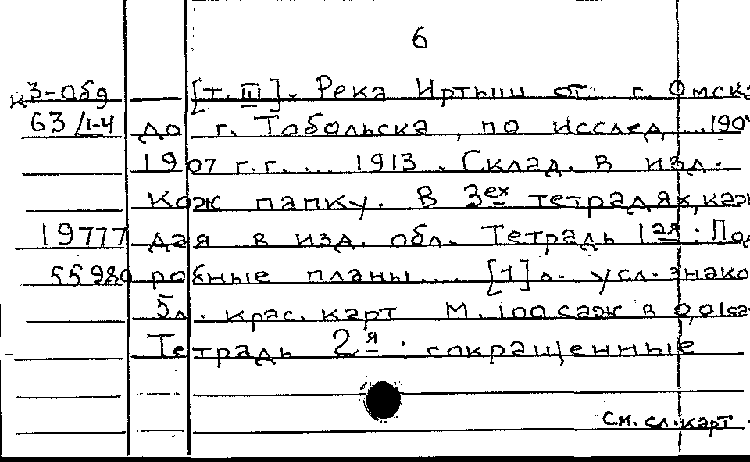 6
К 3-Обд [т. III]. Река Иртыш от г. Омска
63/1-4 до г. Тобольска, по исслед. 190
1907 г.г. ... 1913. Склад. в изд.
кож папку. В 3ех тетрадях, каж
19777 дая в изд. обл. Тетрадь 1ая: Под
55980 робные планы... [1] л. усл. знако
5л. крас. карт М. 100 саж в 0,01 са
Тетрадь 2я: сокращенные
см. сл. карт.